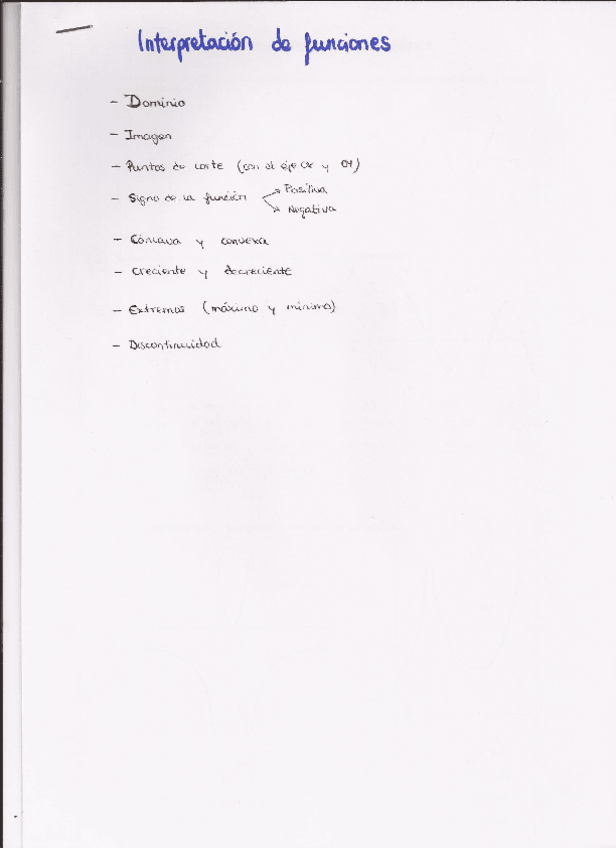 Interpretación de funciones
- Dominio
- Imagen
- Puntos de corte (con el eje OX y OY)
- Signo de la función → Positiva
→ Negativa
- Cóncava y convexa
- Creciente y decreciente
- Extremos (máximo y mínimo)
- Discontinuidad